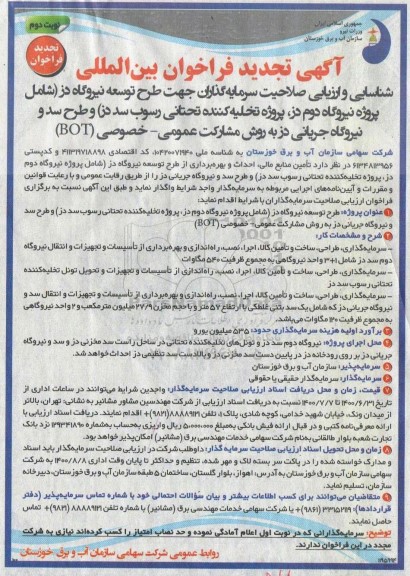 جمهوری اسلامی ایران
وزارت نیرو
سازمان آب و برق خوزستان
نوبت دوم
تجدید
فراخوان
آگهی تجدید فراخوان بین‌المللی
شناسایی و ارزیابی صلاحیت سرمایه‌گذاران جهت طرح توسعه نیروگاه دز (شامل
پروژه نیروگاه دوم دز، پروژه تخلیه کننده تحتانی رسوب سد دز) و طرح سد و
نیروگاه جریانی دز به روش مشارکت عمومی- خصوصی (BOT)
شرکت سهامی سازمان آب و برق خوزستان به شناسه ملی کد اقتصادی ۴۱۱۳۹۷۱۸۸۹۸ و کدپستی
۶۱۳۴۸۱۳۹۵۶ در نظر دارد تأمین منابع مالی، احداث و بهره‌برداری از طرح توسعه نیروگاه دز (شامل پروژه نیروگاه دوم
دز، پروژه تخلیه‌کننده تحتانی رسوب سد دز) و طرح سد و نیروگاه جریانی دز را از طریق رقابت عمومی و با رعایت قوانین
و مقررات و آیین‌نامه‌های اجرایی مربوطه به سرمایه‌گذار واجد شرایط واگذار نماید و طبق این آگهی نسبت به برگزاری
فراخوان ارزیابی صلاحیت سرمایه‌گذاران با شرایط ذیل اقدام نماید:
۱ عنوان پروژه: طرح توسعه نیروگاه دز (شامل پروژه نیروگاه دوم دز، پروژه تخلیه‌کننده تحتانی رسوب سد دز) و طرح سد
و نیروگاه جریانی دز به روش مشارکت عمومی- خصوصی (BOT)
۲ شرح و مشخصات کار:
– سرمایه‌گذاری، طراحی، ساخت و تأمین کالا، اجرا، نصب، راه‌اندازی و بهره‌برداری از تأسیسات و تجهیزات و انتقال نیروگاه
دوم سد دز شامل ۱+۳ واحد نیروگاهی به مجموع ظرفیت ۵۴۰ مگاوات
– سرمایه‌گذاری، طراحی، ساخت و تأمین کالا، اجرا، نصب، راه‌اندازی از تأسیسات و تجهیزات و تحویل تونل تخلیه‌کننده
تحتانی رسوب سد دز
– سرمایه‌گذاری، طراحی، ساخت و تأمین کالا، اجرا، نصب، راه‌اندازی و بهره‌برداری از تأسیسات و تجهیزات و انتقال سد و
نیروگاه جریانی دز که شامل یک سد بتنی غلتکی با ارتفاع ۵۷ متر و با حجم مخزن ۲۷/۹ میلیون مترمکعب و ۲ واحد نیروگاهی
به مجموع ظرفیت ۱۲۰ مگاوات می‌باشد.
۳ برآورد اولیه هزینه سرمایه‌گذاری حدود: ۵۳۵ میلیون یورو
۴ محل اجرای پروژه: نیروگاه دوم سد دز و تونل‌های تخلیه‌کننده تحتانی در ساحل راست سد مخزنی دز و سد و نیروگاه
جریانی دز بر روی رودخانه دز در پایین دست سد مخزنی دز و بالادست سد تنظیمی دز احداث خواهد شد.
۵ سرمایه‌پذیر: سازمان آب و برق خوزستان
۶ سرمایه‌گذار: سرمایه‌گذار حقیقی یا حقوقی
۷ قیمت، زمان و محل دریافت اسناد ارزیابی صلاحیت سرمایه‌گذار: واجدین شرایط می‌توانند در ساعات اداری از
تاریخ ۱۴۰۰/۶/۳۱ تا ۱۴۰۰/۷/۷ نسبت به دریافت اسناد ارزیابی از شرکت مهندسین مشاور مشانیر به نشانی: تهران، بالاتر
از میدان ونک، خیابان شهید خدامی، کوچه شادی، پلاک ۱، تلفن ۸۸۸۸۹۱۲۱ (۹۸۲۱+) اقدام نمایند. دریافت اسناد ارزیابی با
ارائه معرفی‌نامه کتبی و در قبال ارائه فیش بانکی به‌مبلغ ۵،۰۰۰،۰۰۰ ریال واریزی به‌حساب به‌شماره نزد بانک
تجارت شعبه بلوار طالقانی به‌نام شرکت سهامی خدمات مهندسی برق (مشانیر) امکان‌پذیر خواهد بود.
۸ زمان و محل تحویل اسناد ارزیابی صلاحیت سرمایه گذار: داوطلب شرکت در ارزیابی صلاحیت سرمایه‌گذار باید اسناد
و مدارک خواسته شده را در پاکت سر بسته لاک و مهر شده، تنظیم و حداکثر تا پایان وقت اداری ۱۴۰۰/۸/۸ به شرکت
سهامی سازمان آب و برق خوزستان به آدرس، اهواز، بلوار گلستان، ساختمان ۵ طبقه سازمان آب و برق خوزستان، دبیرخانه
سازمان، تسلیم نماید.
۹ متقاضیان می‌توانند برای کسب اطلاعات بیشتر و بیان سؤالات احتمالی خود با شماره تماس سرمایه‌پذیر (دفتر
قراردادها) (۹۸۶۱+) و یا شرکت سهامی خدمات مهندسی برق (مشانیر) با شماره ۸۸۸۸۹۱۲۱ (۹۸۲۱+) تماس
حاصل نمایند.
توضیح: سرمایه‌گذارانی که در نوبت اول اعلام آمادگی نموده و حد نصاب امتیاز را کسب کرده‌اند نیازی به شرکت
مجدد در این فراخوان ندارند.
روابط عمومی شرکت سهامی سازمان آب و برق خوزستان